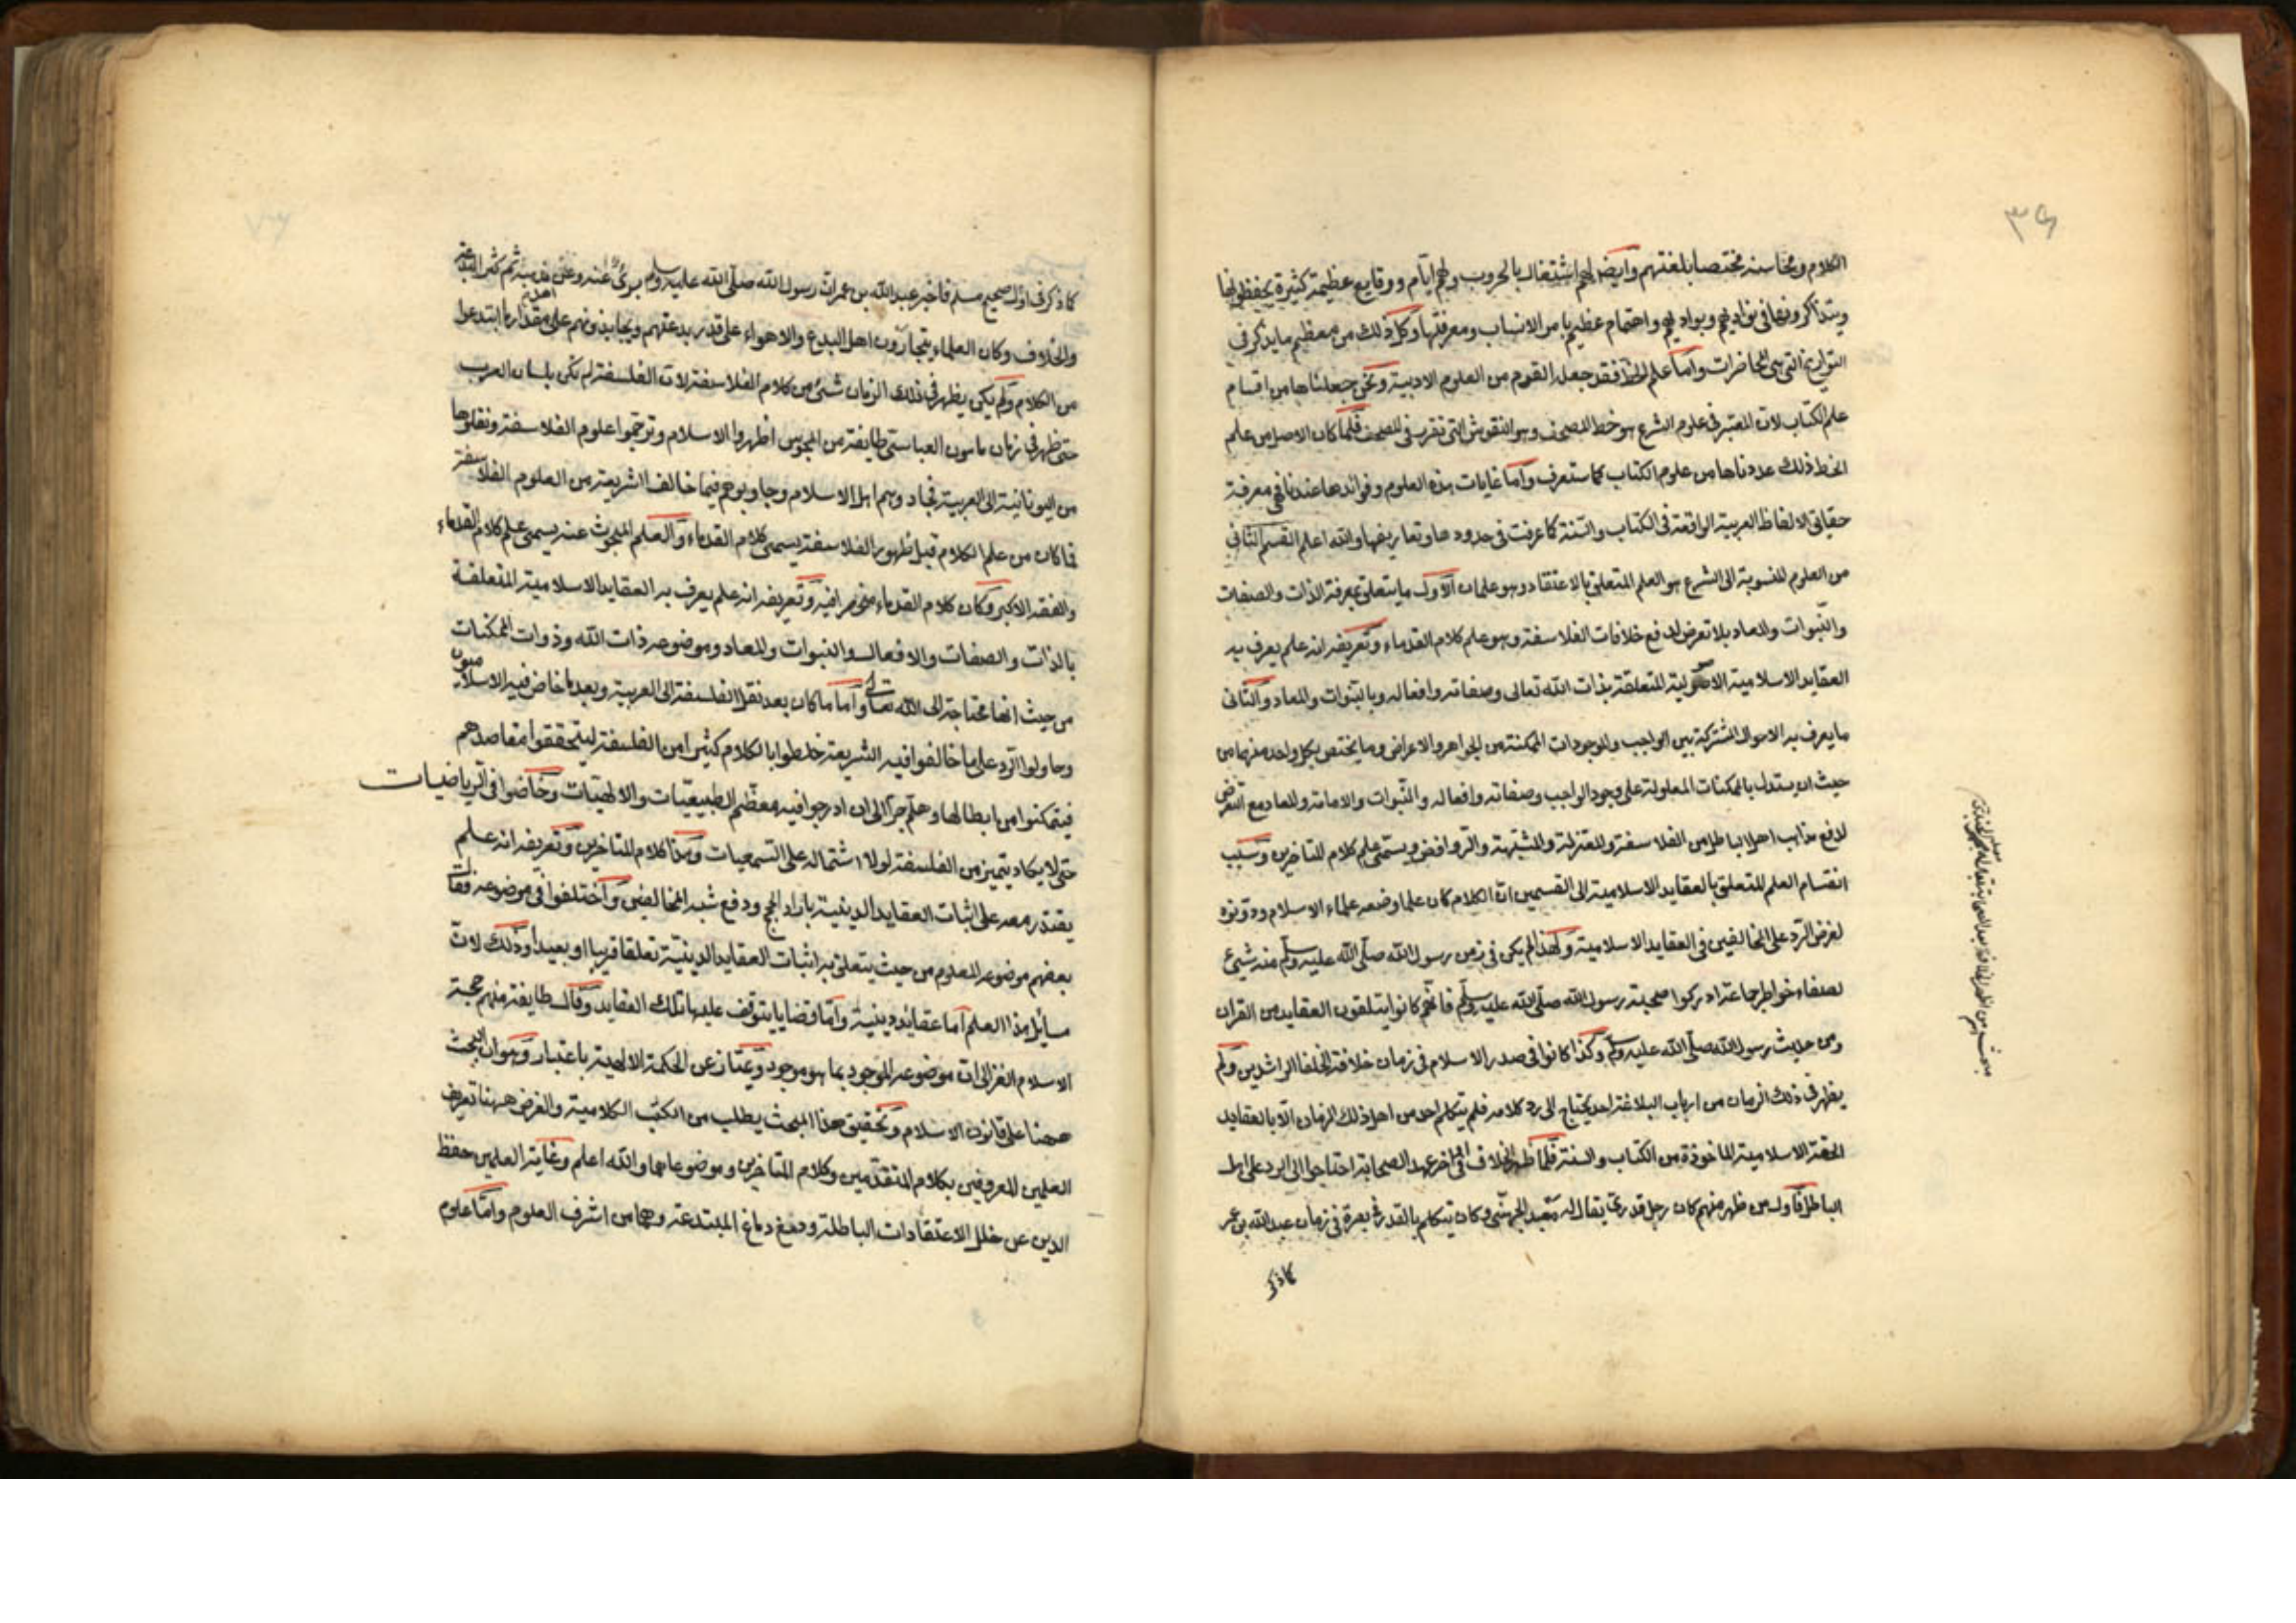 ٣٦
الكلام ومحاسنه مختصا بلغتهم وايضا لهم اشتغال بالحروب ولهم ايام ووقايع عظيمة كثيرة يحفظونها
ويتذاكرونها في نواديهم وبواديهم واهتمام عظيم بامر الانساب ومعرفتها وكل ذلك من معظم ما يذكر في
التواريخ التي هي المحاضرات واما علم الخط فقد جعله القوم من العلوم الادبية ونحن جعلناها من اقسام
علم الكتاب لان المعتبر في علوم الشرع هو خط المصحف وهو النقوش التي تقرر في المصحف فلما كان الاصل من علم
الخط ذلك عددناها من علوم الكتاب كما ستعرف واما غايات هذه العلوم وفوائدها عندنا فهي معرفة
حقايق الالفاظ العربية الواقعة في الكتاب والسنة كما عرفت في حدودها وتعاريفها والله اعلم القسم الثاني
من العلوم المنسوبة الى الشرع هو العلم المتعلق بالاعتقاد وهو علمان الاول ما يتعلق بمعرفة الذات والصفات
والنبوات والمعاد بلا تعرض لدفع خلافات الفلاسفة وهو علم كلام القدماء وتعريفه انه علم يعرف به
العقايد الاسلامية الاصولية المتعلقة بذات الله تعالى وصفاته وافعاله وبالنبوات والمعاد والثاني
ما يعرف به الاحوال المشتركة بين الواجب والموجودات الممكنة من الجواهر والاعراض وما يختص بكل واحد منهما من
حيث ان يستدل بالممكنات المعلولة على وجود الواجب وصفاته وافعاله والنبوات والامامة والمعاد مع التعرض
لدفع مذاهب اهل الباطل من الفلاسفة والمعتزلة والمشبهة والروافض ويسمى علم كلام المتاخرين وسبب
انقسام العلم المتعلق بالعقايد الاسلامية الى القسمين ان الكلام كان علما وضعه علماء الاسلام ودونوه
لغرض الرد على المخالفين في العقايد الاسلامية ولهذا لم يكن في زمن رسول الله صلى الله عليه وسلم منه شيئ
لصفاء خواطر جماعة ادركوا صحبة رسول الله صلى الله عليه وسلم فانهم كانوا يتلقون العقايد من القران
ومن حديث رسول الله صلى الله عليه وسلم وكذا كانوا في صدر الاسلام في زمان خلافة الخلفا الراشدين ولم
يظهر في ذلك الزمان من ارباب البلاغة احد يحتاج الى رد كلامه فلم يتكلم احد من اهل ذلك الزمان الا بالعقايد
الحقة الاسلامية الماخوذة من الكتاب والسنة فلما ظهر الخلاف في اخر عهد الصحابة احتاجوا الى الرد على اهل
الباطل فاول من ظهر منهم كان رجل قدري يقال له معبد الجهني وكان يتكلم بالقدر في بصرة في زمان عبد الله بن عمر
كما ذكر
كما ذكر في اول صحيح مسلم فاخبر عبد الله بن عمر ان رسول الله صلى الله عليه وسلم بريئ عنه وعن مذهبه ثم كثر البدعة
والخلاف وكان العلماء يتجارون اهل البدع والاهواء على قدر بدعتهم ويجاهدونهم على مقدار ما ابتدعوا
من الكلام ولم يكن يظهر في ذلك الزمان شيئ من كلام الفلاسفة لان الفلسفة لم تكن بلسان العرب
حتى ظهر في زمان مامون العباسي طايفة من المجوس اظهروا الاسلام وترجموا علوم الفلاسفة ونقلوها
من اليونانية الى العربية فجادوهم اهل الاسلام وجاوبوهم فيما خالف الشريعة من العلوم الفلاسفة
فما كان من علم الكلام قبل ظهور الفلاسفة يسمى كلام القدماء والعلم المبحوث عنه يسمى علم كلام القدماء
والفقه الاكبر وكان كلام القدماء منحصرا فيه وتعريفه انه علم يعرف به العقايد الاسلامية المتعلقة
بالذات والصفات والافعال والنبوات والمعاد وموضوعه ذات الله وذوات الممكنات
من حيث انها محتاجة الى الله تعالى واما ما كان بعد نقل الفلسفة الى العربية وبعد ما خاض فيه الاسلاميون
وحاولوا الرد على ما خالفوا فيه الشريعة خلطوا بالكلام كثيرا من الفلسفة ليتحققوا مقاصدهم
فيتمكنوا من ابطالها وهلم جرا الى ان ادرجوا فيه معظم الطبيعيات والالهيات وخاضوا في الرياضيات
حتى لا يكاد يتميز من الفلسفة لولا اشتماله على السمعيات وهذا كلام المتاخرين وتعريفه انه علم
يقتدر معه على اثبات العقايد الدينية بايراد الحجج ودفع شبه المخالفين واختلفوا في موضوعه فقال
بعضهم موضوعه المعلوم من حيث يتعلق به اثبات العقايد الدينية تعلقا قريبا او بعيدا وذلك لان
مسايل هذا العلم اما عقائد دينية واما قضايا يتوقف عليها تلك العقايد وقال طايفة منهم حجة
الاسلام الغزالي ان موضوعه الموجود بما هو موجود ويمتاز عن الحكمة الالهية باعتبار وهو ان البحث
ههنا على قانون الاسلام وتحقيق هذا المبحث يطلب من الكتب الكلامية والغرض ههنا تعريف
العلمين المعروفين بكلام المتقدمين وكلام المتاخرين وموضوعاهما والله اعلم وغاية العلمين حفظ
الدين عن خلل الاعتقادات الباطلة ودمغ دماغ المبتدعة وهما من اشرف العلوم واما علوم